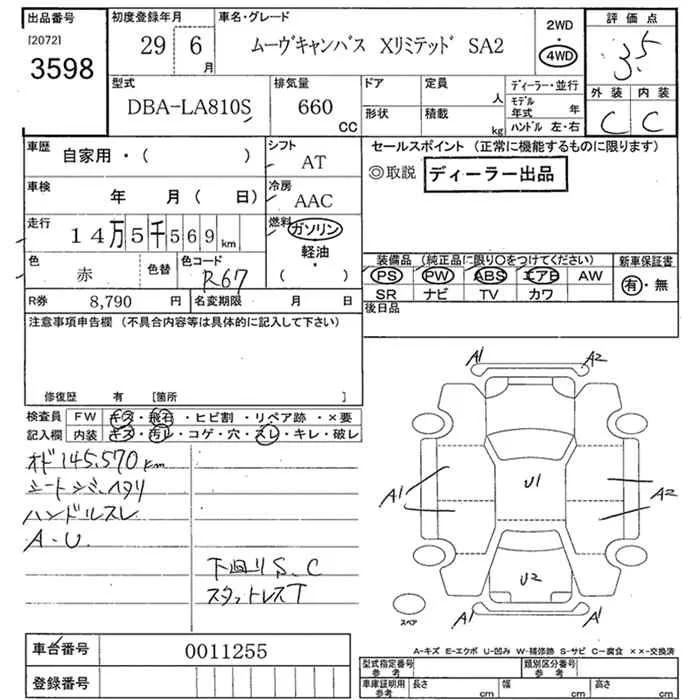 出品番号
[2072]
3598
初度登録年月
29 6 月
車名・グレード
ムーヴキャンバス Xリミテッド SA2
2WD
・
4WD
評価点
3.5
外装 内装
C C
型式
DBA-LA810S
排気量
660 CC
ドア
形状
定員 人
積載 kg
ディーラー・並行
モデル年式 年
ハンドル 左・右
車歴
自家用・( )
シフト
AT
車検
年 月( 日)
冷房
AAC
走行
14万5千569km
燃料
ガソリン
軽油・
( )
色
赤
色替
色コード
R67
R券 8,790 円
名変期限 月 日
セールスポイント(正常に機能するものに限ります)
◎取説 ディーラー出品
装備品(純正品に限り○をつけてください)
PS PW ABS エアB AW
SR ナビ TV カワ
新車保証書
有・無
後日品
注意事項申告欄(不具合内容等は具体的に記入して下さい)
修復歴 有 [箇所 ]
検査員記入欄
FW キズ・飛石・ヒビ割・リペア跡・×要
内装 キズ・汚レ・コゲ・穴・スレ・キレ・破レ
オド145,570km
シートシミ、ヘタリ
ハンドルスレ
A・U
下回りS、C
スタットレスT
A1 A2
A1 U1 A2
U2
A1 A2
スペア
A-キズ E-エクボ U-凹み W-補修跡 S-サビ C-腐食 ××-交換済
車台番号 0011255
登録番号
型式指定番号
参考
類別区分番号
参考
車庫証明用
参考
長さ cm 幅 cm 高さ cm